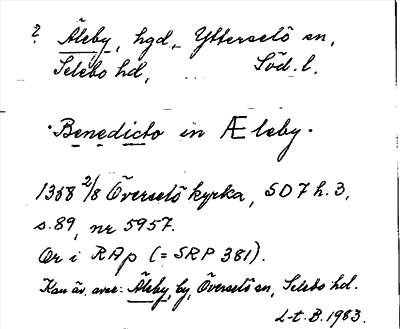 ? Äleby, hgd., Ytterselö sn,
Selebo hd, Söd. l.
· Benedicto in Æleby ·
1358 2/8 Överselö kyrka, SD 7 h. 3,
s. 89, nr 5957.
Or i RAp (= SRP 381).
Kan äv. avse: Äleby, by, Överselö sn, Selebo hd.
L-t. B. 1983.